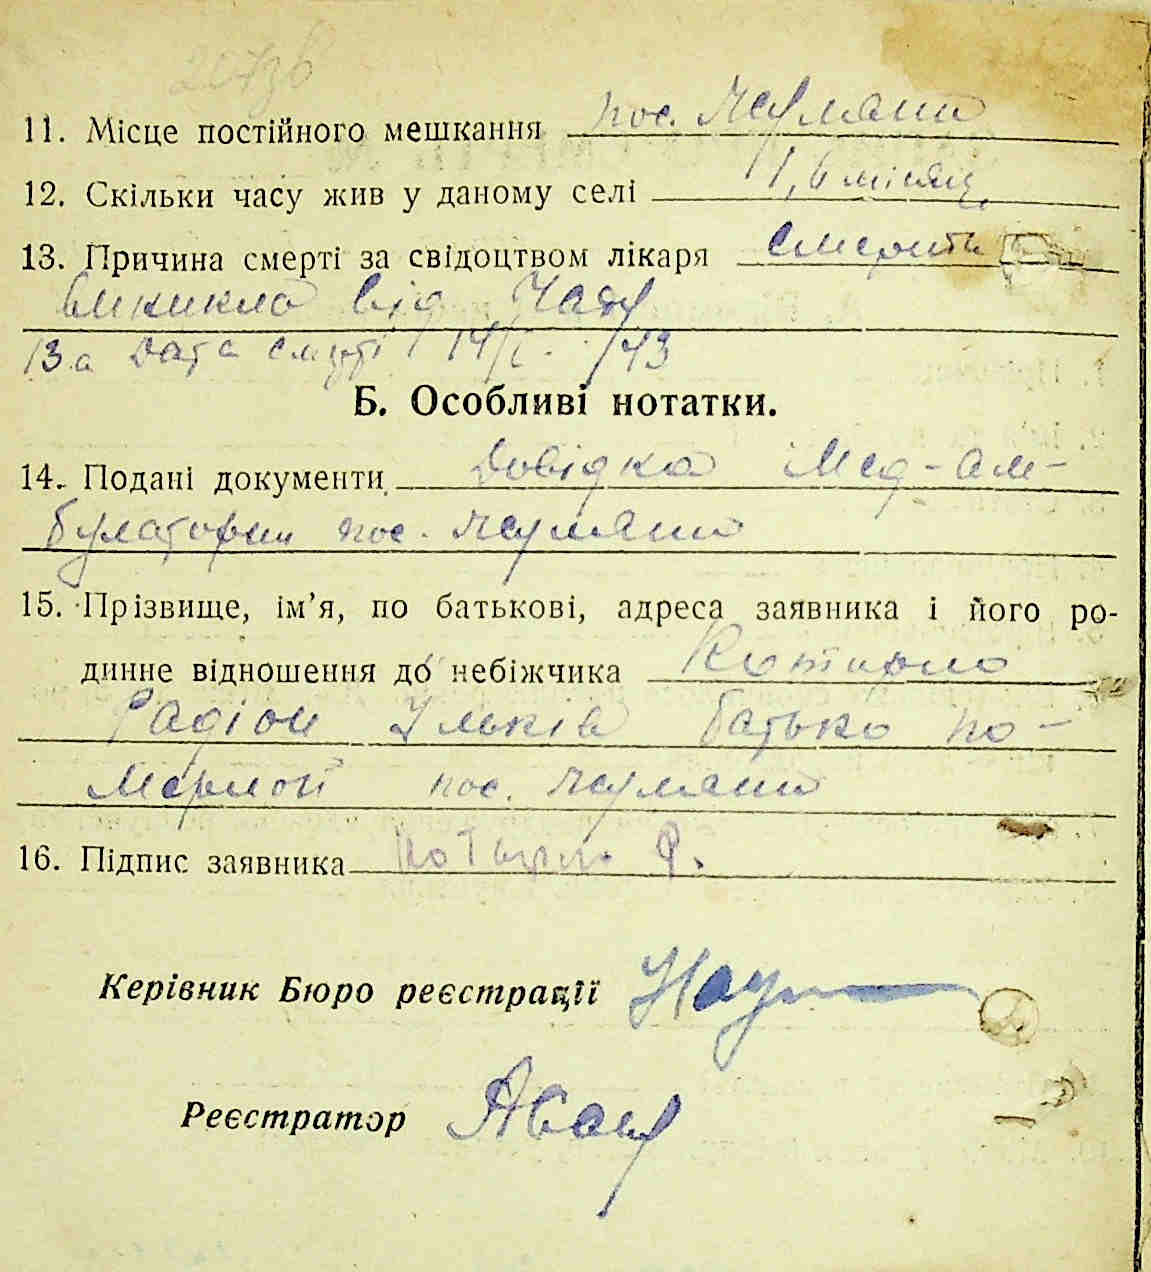 11. Місце постійного мешкання пос. Чумани
12. Скільки часу жив у даному селі 1,6 місяц
13. Причина смерті за свідоцтвом лікаря смерть
виникла від Чаду
13а Дата смерті 14/I. /43
Б. Особливі нотатки.
14. Подані документи Довідка Мед-ам-
булаторіи пос. Чумани
15. Прізвище, ім’я, по батькові, адреса заявника і його ро-
динне відношення до небіжчика Котирло
Радіон Ільків батько по-
мерлой пос. Чумани
16. Підпис заявника Котирло Р.
Керівник Бюро реєстрації
Реєстратор